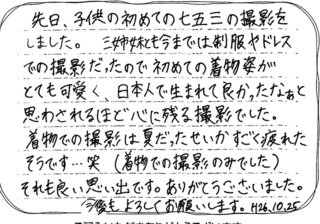 先日、子供の初めての七五三の撮影を
しました。三姉妹とも今までは制服やドレス
での撮影だったので初めての着物姿が
とても可愛く、日本人で生まれて良かったなぁと
思わされるほど心に残る撮影でした。
着物での撮影は夏だったせいかすごく疲れた
そうです…笑（着物での撮影のみでした）
それも良い思い出です。ありがとうございました。
今後も よろしくお願いします。H26.10.25